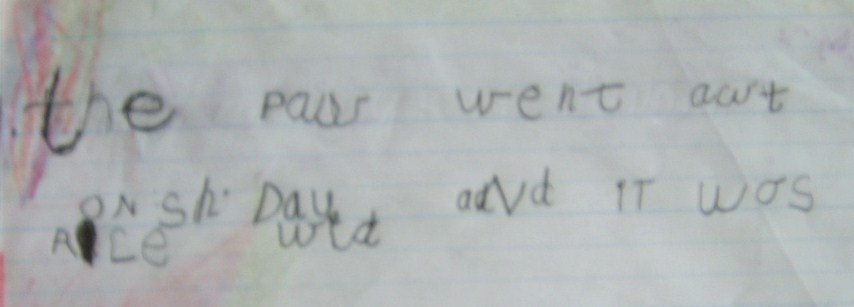 the paur went awt
ON Sh. Day and IT wos
A ce wld